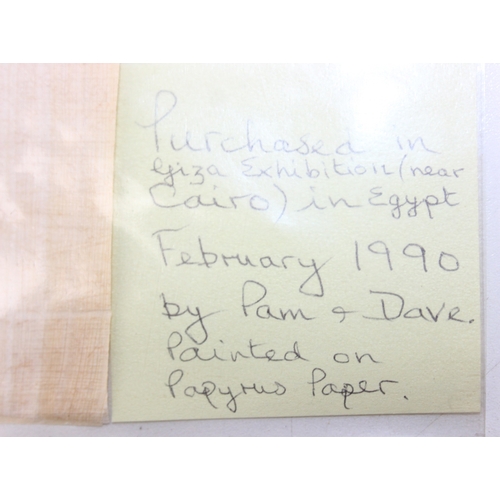 Purchased in
Giza Exhibition (near
Cairo) in Egypt
February 1990
by Pam & Dave.
Painted on
Papyrus Paper.